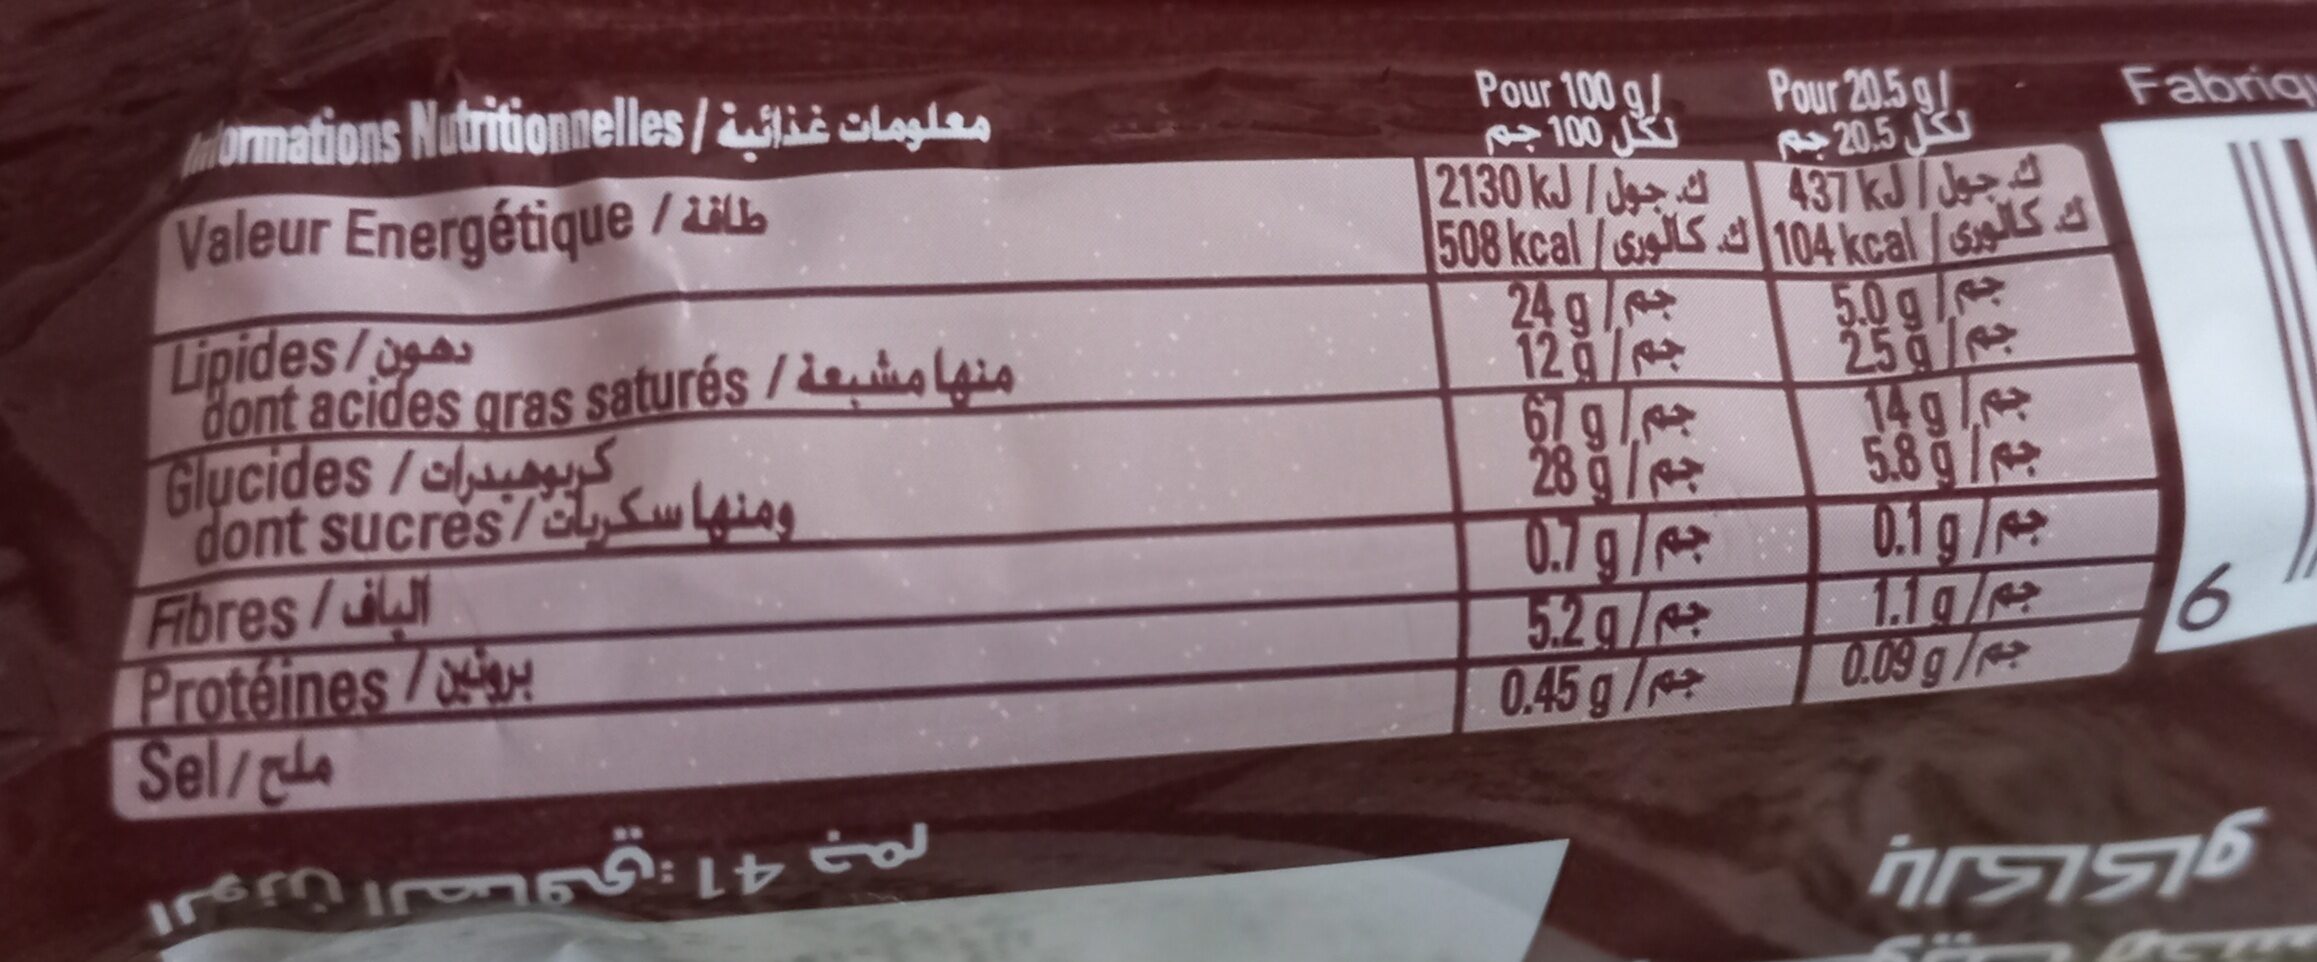 Informations Nutritionnelles / معلومات غذائية
Pour 100 g / Pour 20.5 g /
لكل 100 جم لكل 20.5 جم
Valeur Energétique / طاقة 2130 kJ / ك. جول 437 kJ / ك. جول
508 kcal / ك. كالورى 104 kcal / ك. كالورى
Lipides / دهون 24 g / جم 5.0 g / جم
dont acides gras saturés / منها مشبعة 12 g / جم 2.5 g / جم
Glucides / كربوهيدرات 67 g / جم 14 g / جم
dont sucres / ومنها سكريات 28 g / جم 5.8 g / جم
Fibres / ألياف 0.7 g / جم 0.1 g / جم
Protéines / بروتين 5.2 g / جم 1.1 g / جم
Sel / ملح 0.45 g / جم 0.09 g / جم
6
الوزن الصافي: 41 جم